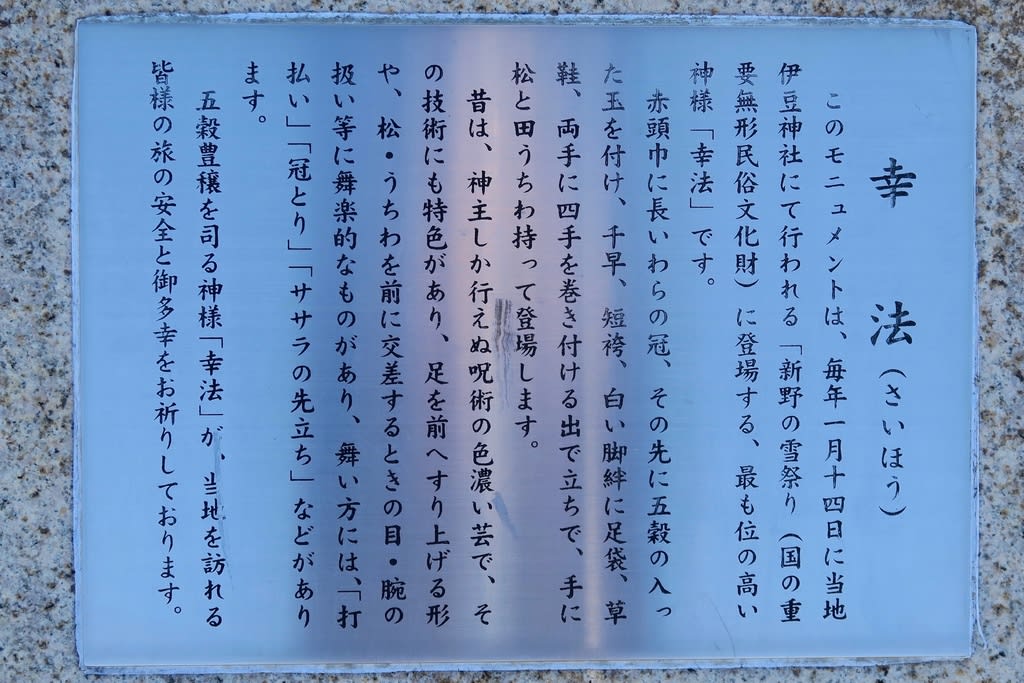 幸法(さいほう)
このモニュメントは、毎年一月十四日に当地
伊豆神社にて行われる「新野の雪祭り(国の重
要無形民俗文化財)に登場する、最も位の高い
神様「幸法」です。
赤頭巾に長いわらの冠、その先に五穀の入っ
た玉を付け、千早、短袴、白い脚絆に足袋、草
鞋、両手に四手を巻き付ける出で立ちで、手に
松と田うちわ持って登場します。
昔は、神主しか行えぬ呪術の色濃い芸で、そ
の技術にも特色があり、足を前へすり上げる形
や、松・うちわを前に交差するときの目・腕の
扱い等に舞楽的なものがあり、舞い方には、「打
払い」「冠とり」「ササラの先立ち」などがあり
ます。
五穀豊穣を司る神様「幸法」が、当地を訪れる
皆様の旅の安全と御多幸をお祈りしております。